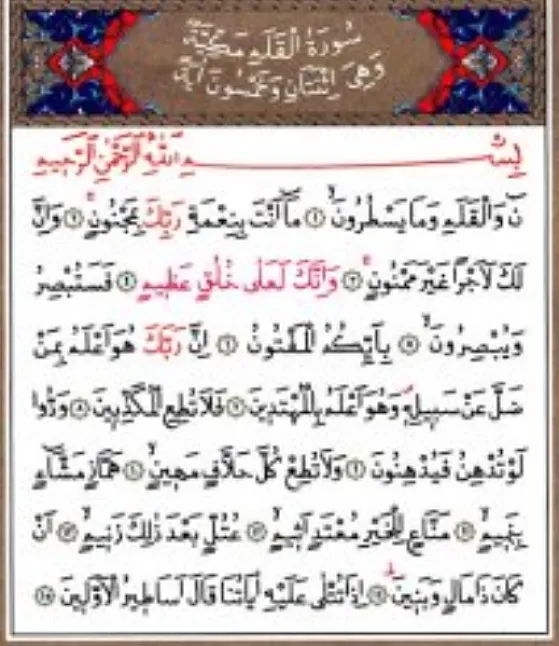 سُورَةُ الْقَلَمِ مَكِّيَّةٌ
وَهِيَ اِثْنَتَانِ وَخَمْسُونَ اٰيَةً
بِسْمِ اللّٰهِ الرَّحْمٰنِ الرَّحِيمِ
نٓ وَالْقَلَمِ وَمَا يَسْطُرُونَۙ ﴿١﴾ مَٓا اَنْتَ بِنِعْمَةِ رَبِّكَ بِمَجْنُونٍۚ ﴿٢﴾ وَاِنَّ
لَكَ لَاَجْرًا غَيْرَ مَمْنُونٍۚ ﴿٣﴾ وَاِنَّكَ لَعَلٰى خُلُقٍ عَظِيمٍ ﴿٤﴾ فَسَتُبْصِرُ
وَيُبْصِرُونَۙ ﴿٥﴾ بِاَيِّكُمُ الْمَفْتُونُ ﴿٦﴾ اِنَّ رَبَّكَ هُوَ اَعْلَمُ بِمَنْ
ضَلَّ عَنْ سَبِيلِهِۖ وَهُوَ اَعْلَمُ بِالْمُهْتَدِينَ ﴿٧﴾ فَلَا تُطِعِ الْمُكَذِّبِينَ ﴿٨﴾ وَدُّوا
لَوْ تُدْهِنُ فَيُدْهِنُونَ ﴿٩﴾ وَلَا تُطِعْ كُلَّ حَلَّافٍ مَهِينٍۙ ﴿١٠﴾ هَمَّازٍ مَشَّٓاءٍ
بِنَمِيمٍۙ ﴿١١﴾ مَنَّاعٍ لِلْخَيْرِ مُعْتَدٍ اَثِيمٍۙ ﴿١٢﴾ عُتُلٍّ بَعْدَ ذٰلِكَ زَنِيمٍۙ ﴿١٣﴾ اَنْ
كَانَ ذَا مَالٍ وَبَنِينَۜ ﴿١٤﴾ اِذَا تُتْلٰى عَلَيْهِ اٰيَاتُنَا قَالَ اَسَاطِيرُ الْاَوَّلِينَ ﴿١٥﴾